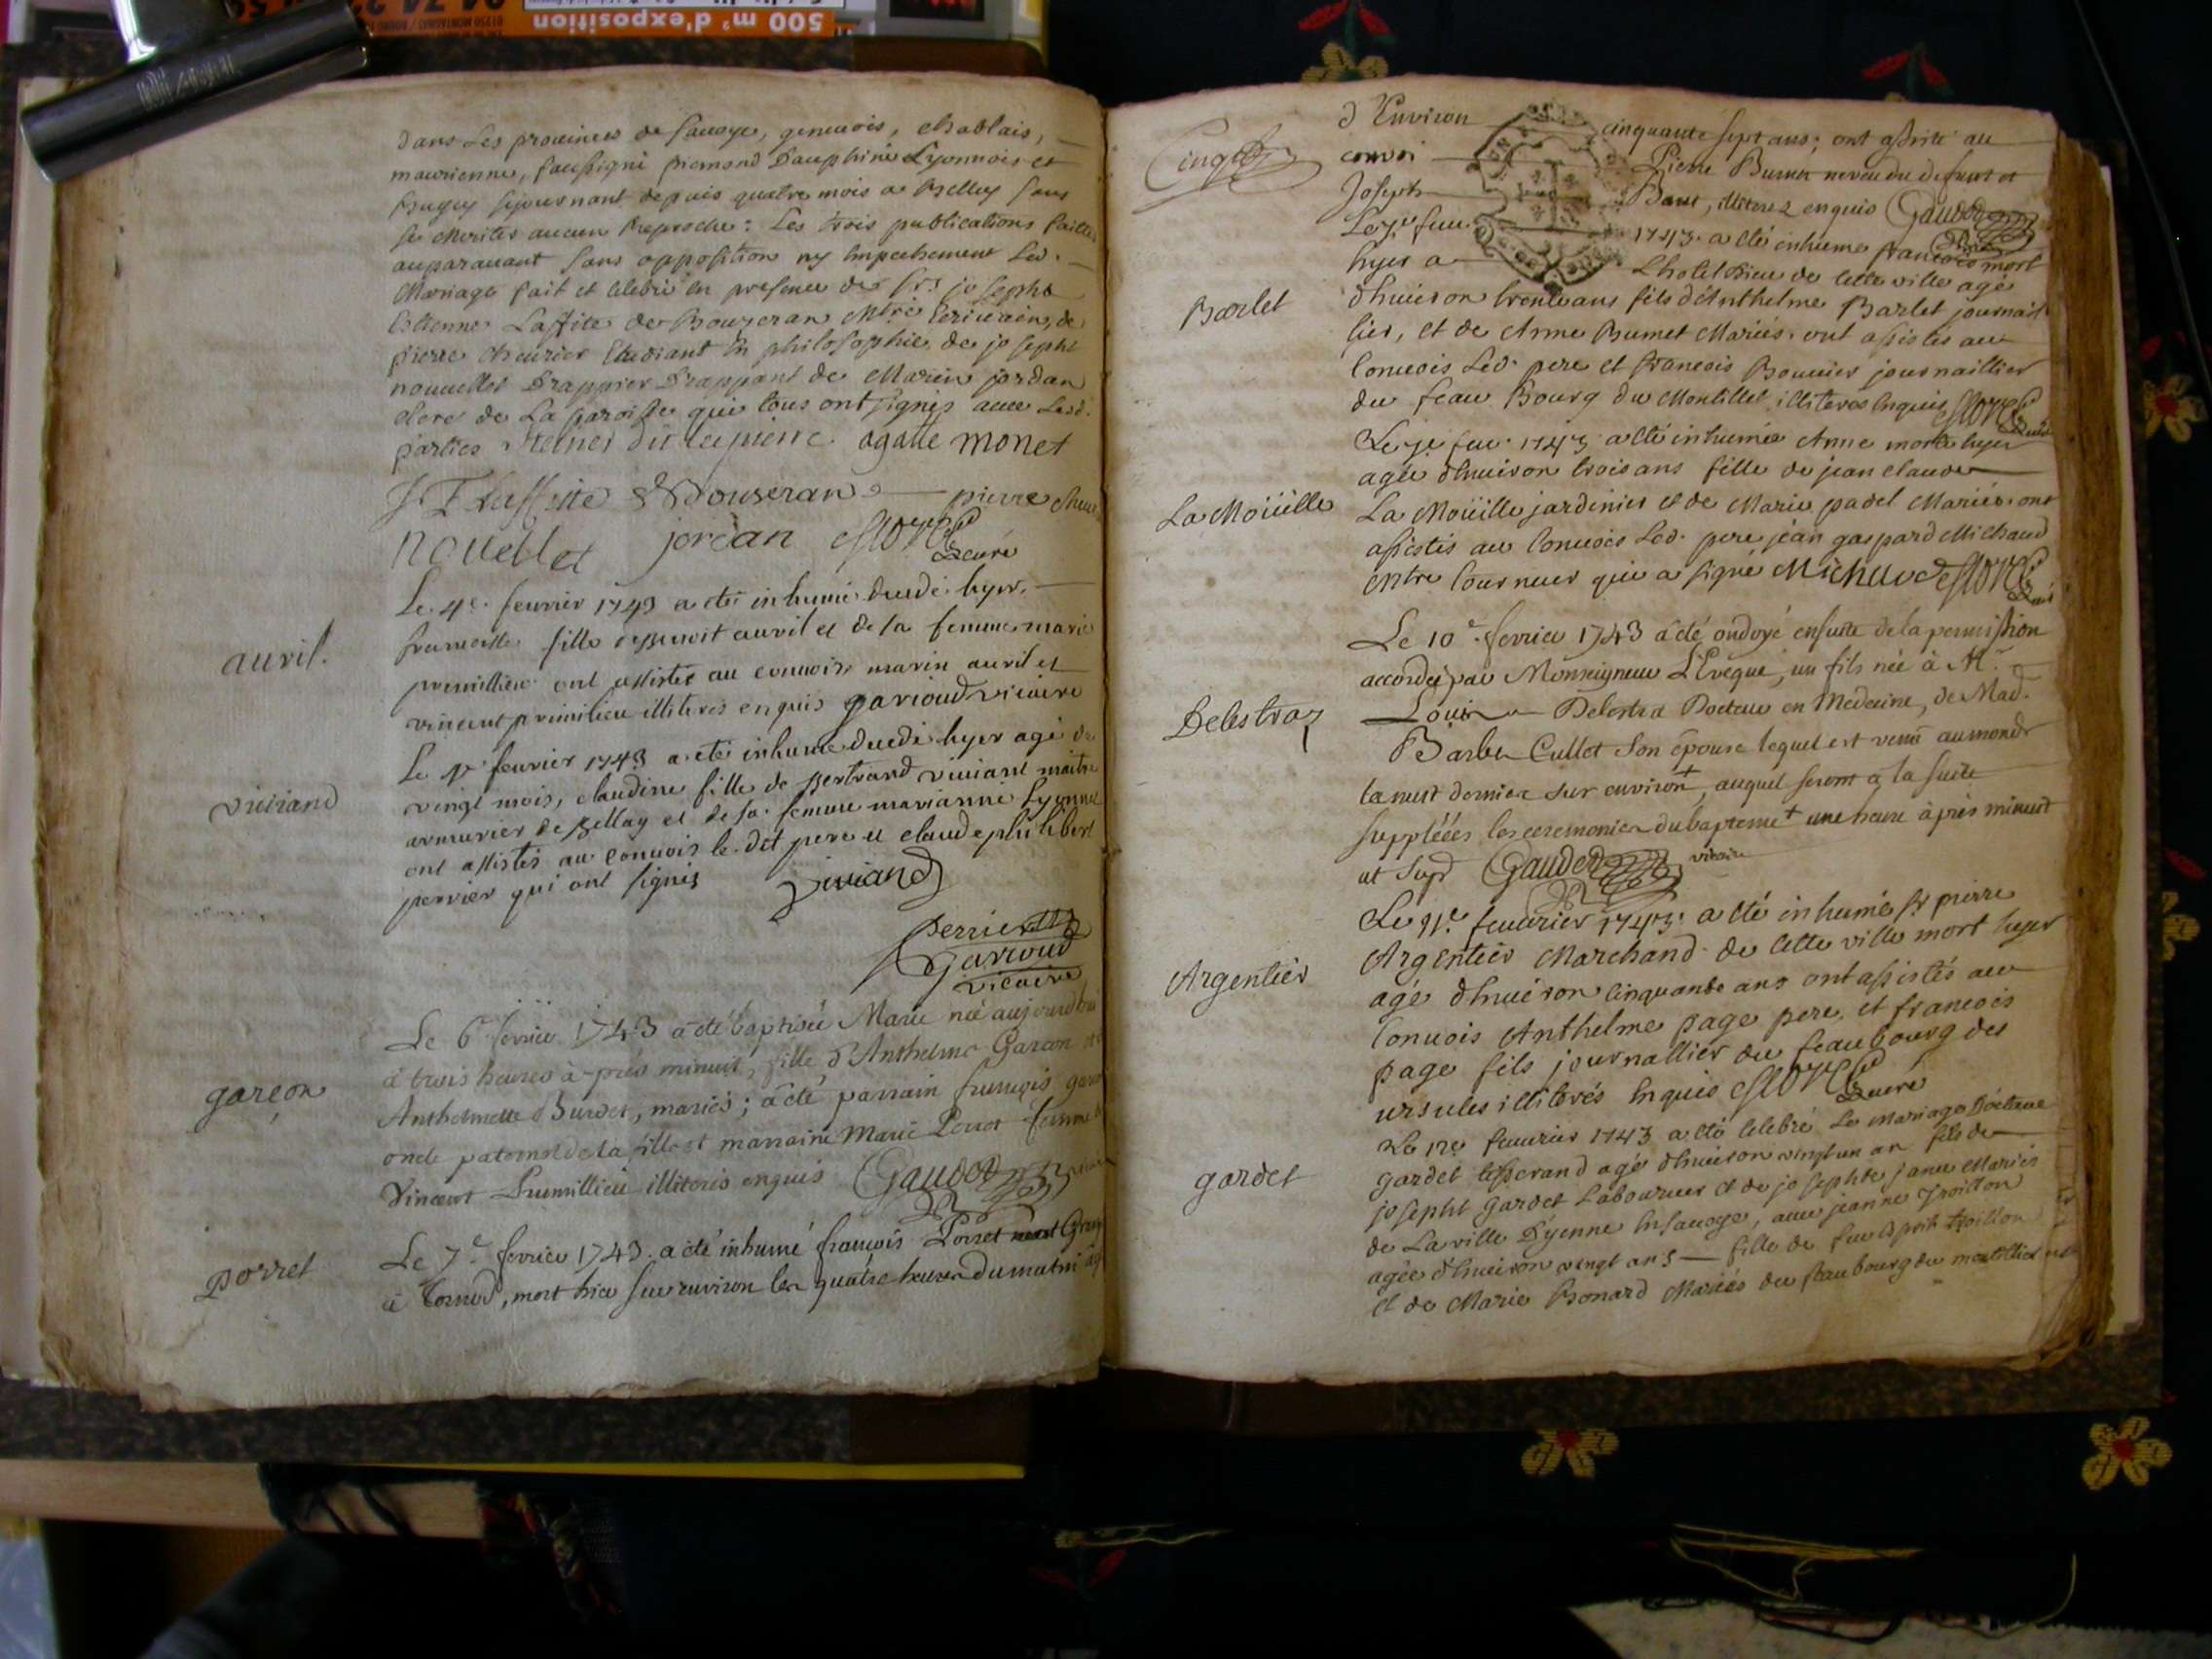 500 m² d'exposition
dans Les prouinces de Sauoye, geneuois, chablais,
maurienne, faussigni piemond Dauphiné Lyonnois et
Bugey sejournant depuis quatre mois a Belley sans
se meriter aucun Reproche: Les trois publications faittes
auparauant sans opposition ny Empechement Led.
Mariage fait et celebré en presence de Srs josephe
Estienne Laffite de Bouzeran Mtre Ecriuain, de
pierre cheurier Etudiant En philosophie, de joseph
nouuellet Drappier Drappant de Marin jordan
clerc de La paroisse qui tous ont signes auec Lesd.
parties Steiner dit lapierre agatte monet
Bouseran pierre
novellet jordan
curé
auril.
Le 4e. feurier 1743 a eté inhumé decedé hyer.
francoise fille auril et de sa femme marie
premillieu ont assistes au conuois marin auril et
vincent primilieu illiteres enquis garioud vicaire
viuiand
Le feurier 1743 a eté inhumé decedé hyer agé de
vingt mois, claudine fille de Bertrand viuiant maitre
armurier de Bellay et de sa femme marianne Lyonne
ont assistés au conuois le dit pere et claude philibert
perrier qui ont signes viuiand
Perrier
Garioud
vicaire
garçon
Le 6e fevrier 1743 a été baptisée Marie née aujourdhui
à trois heures après minuit, fille d'Anthelme Garçon et
Anthelmette Burdet, mariés; a été parrain françois garcon
oncle paternel de la fille et marraine Marie Perrot femme
Vincent Prémillieu illiterés enquis Gaudet
porret
Le 7e. fevrier 1743. a été inhumé françois Porret
, mort hier sur environ les quatre heures du matin agé
d'Environ cinquante sept ans; ont assisté au
convoi Pierre Burnet neveu du defunt et
Joseph Baret, illiterez enquis Gaudet
Le 7e. feu. 1743. a eté inhumé francois mort
hyer a L'hotel Dieu de Cette ville agé
Barlet
d'Enuiron trente ans fils d'Anthelme Barlet journail
lier, et de Anne Bumet Mariés. ont assistés au
Conuois Led. pere et francois Bouuier journaillier
du feau Bourg du Montillet illiteres Enquis
Curé
Le feu. 1743 a eté inhumée Anne morte hyer
agée d'Enuiron trois ans fille de jean claude
La Moüille
La Moüille jardinier et de Marie padel Mariés. ont
assistés au Conuois Led. pere jean gaspard Michaud
Mtre Tourneur qui a signé Michaud
Curé
Le 10e. fevrier 1743 a été ondoyé ensuite de la permission
accordée par Monseigneur L'Evêque, un fils née à Mr.
Delestraz
Louis Delestra Docteur en Medecine, de Mad.
Barbe Cullet son épouse lequel est venu au monde
la nuit derniere sur environ +, auquel seront a la suite
suppléées les ceremonies du bapteme + une heure après minuit
ut supr Gaudet vicaire
Le 11e. feuurier 1743. a eté inhumé Sr pierre
Argentier
Argentier Marchand de Cette ville mort hyer
agé d'Enuiron Cinquante ans ont assistés au
Conuois Anthelme page pere, et francois
page fils journallier du feaubourg des
ursules illiterés Enquis
Curé
Le 12e feuurier 1743 a eté Celebré Le Mariage D'étienne
gardet
gardet tisserand agé d'Enuiron vingt un an fils de
joseph gardet Laboureur et de josephte janu Mariés
de La ville D'yenne En sauoye, auec jeanne Troillon
agée d'Enuiron vingt ans fille de feu Troillon
et de Marie Bonard Mariés du feaubourg du montillier